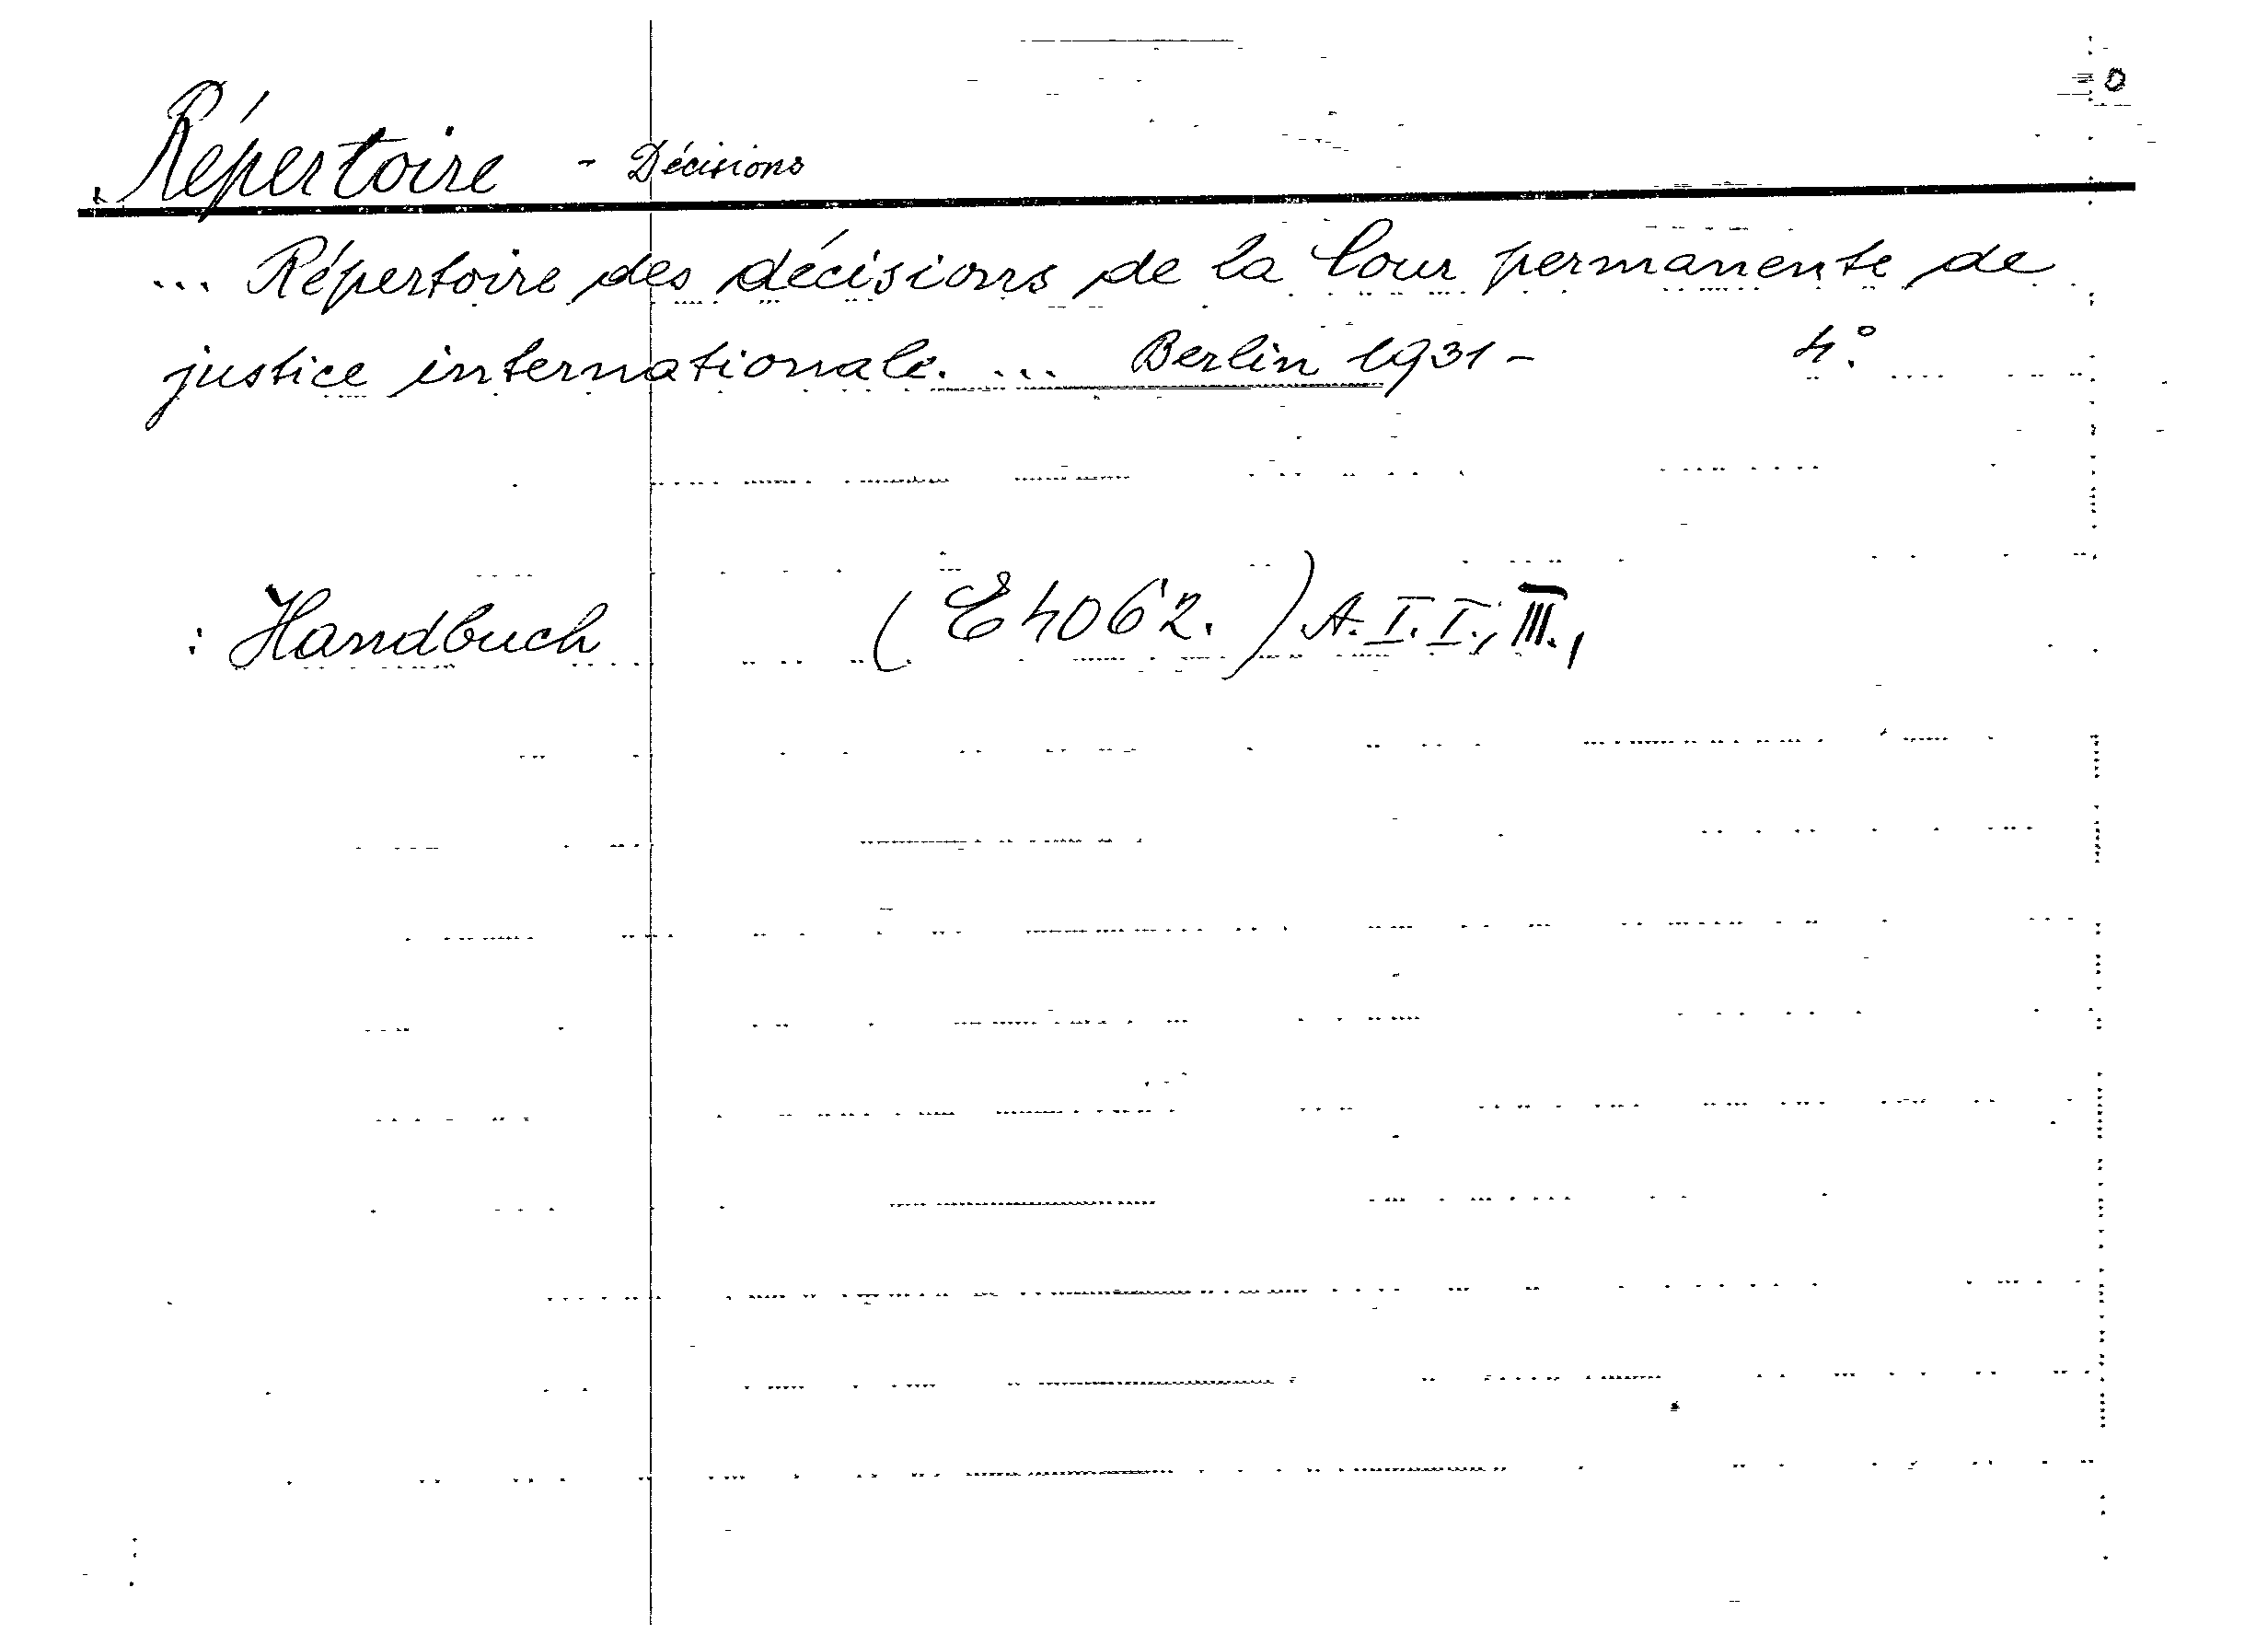 Répertoire - Décisions
... Répertoire des décisions de la Cour permanente de
justice internationale. ... Berlin 1931- 4°.
: Handbuch (E 4062.) A. I. I., III.,